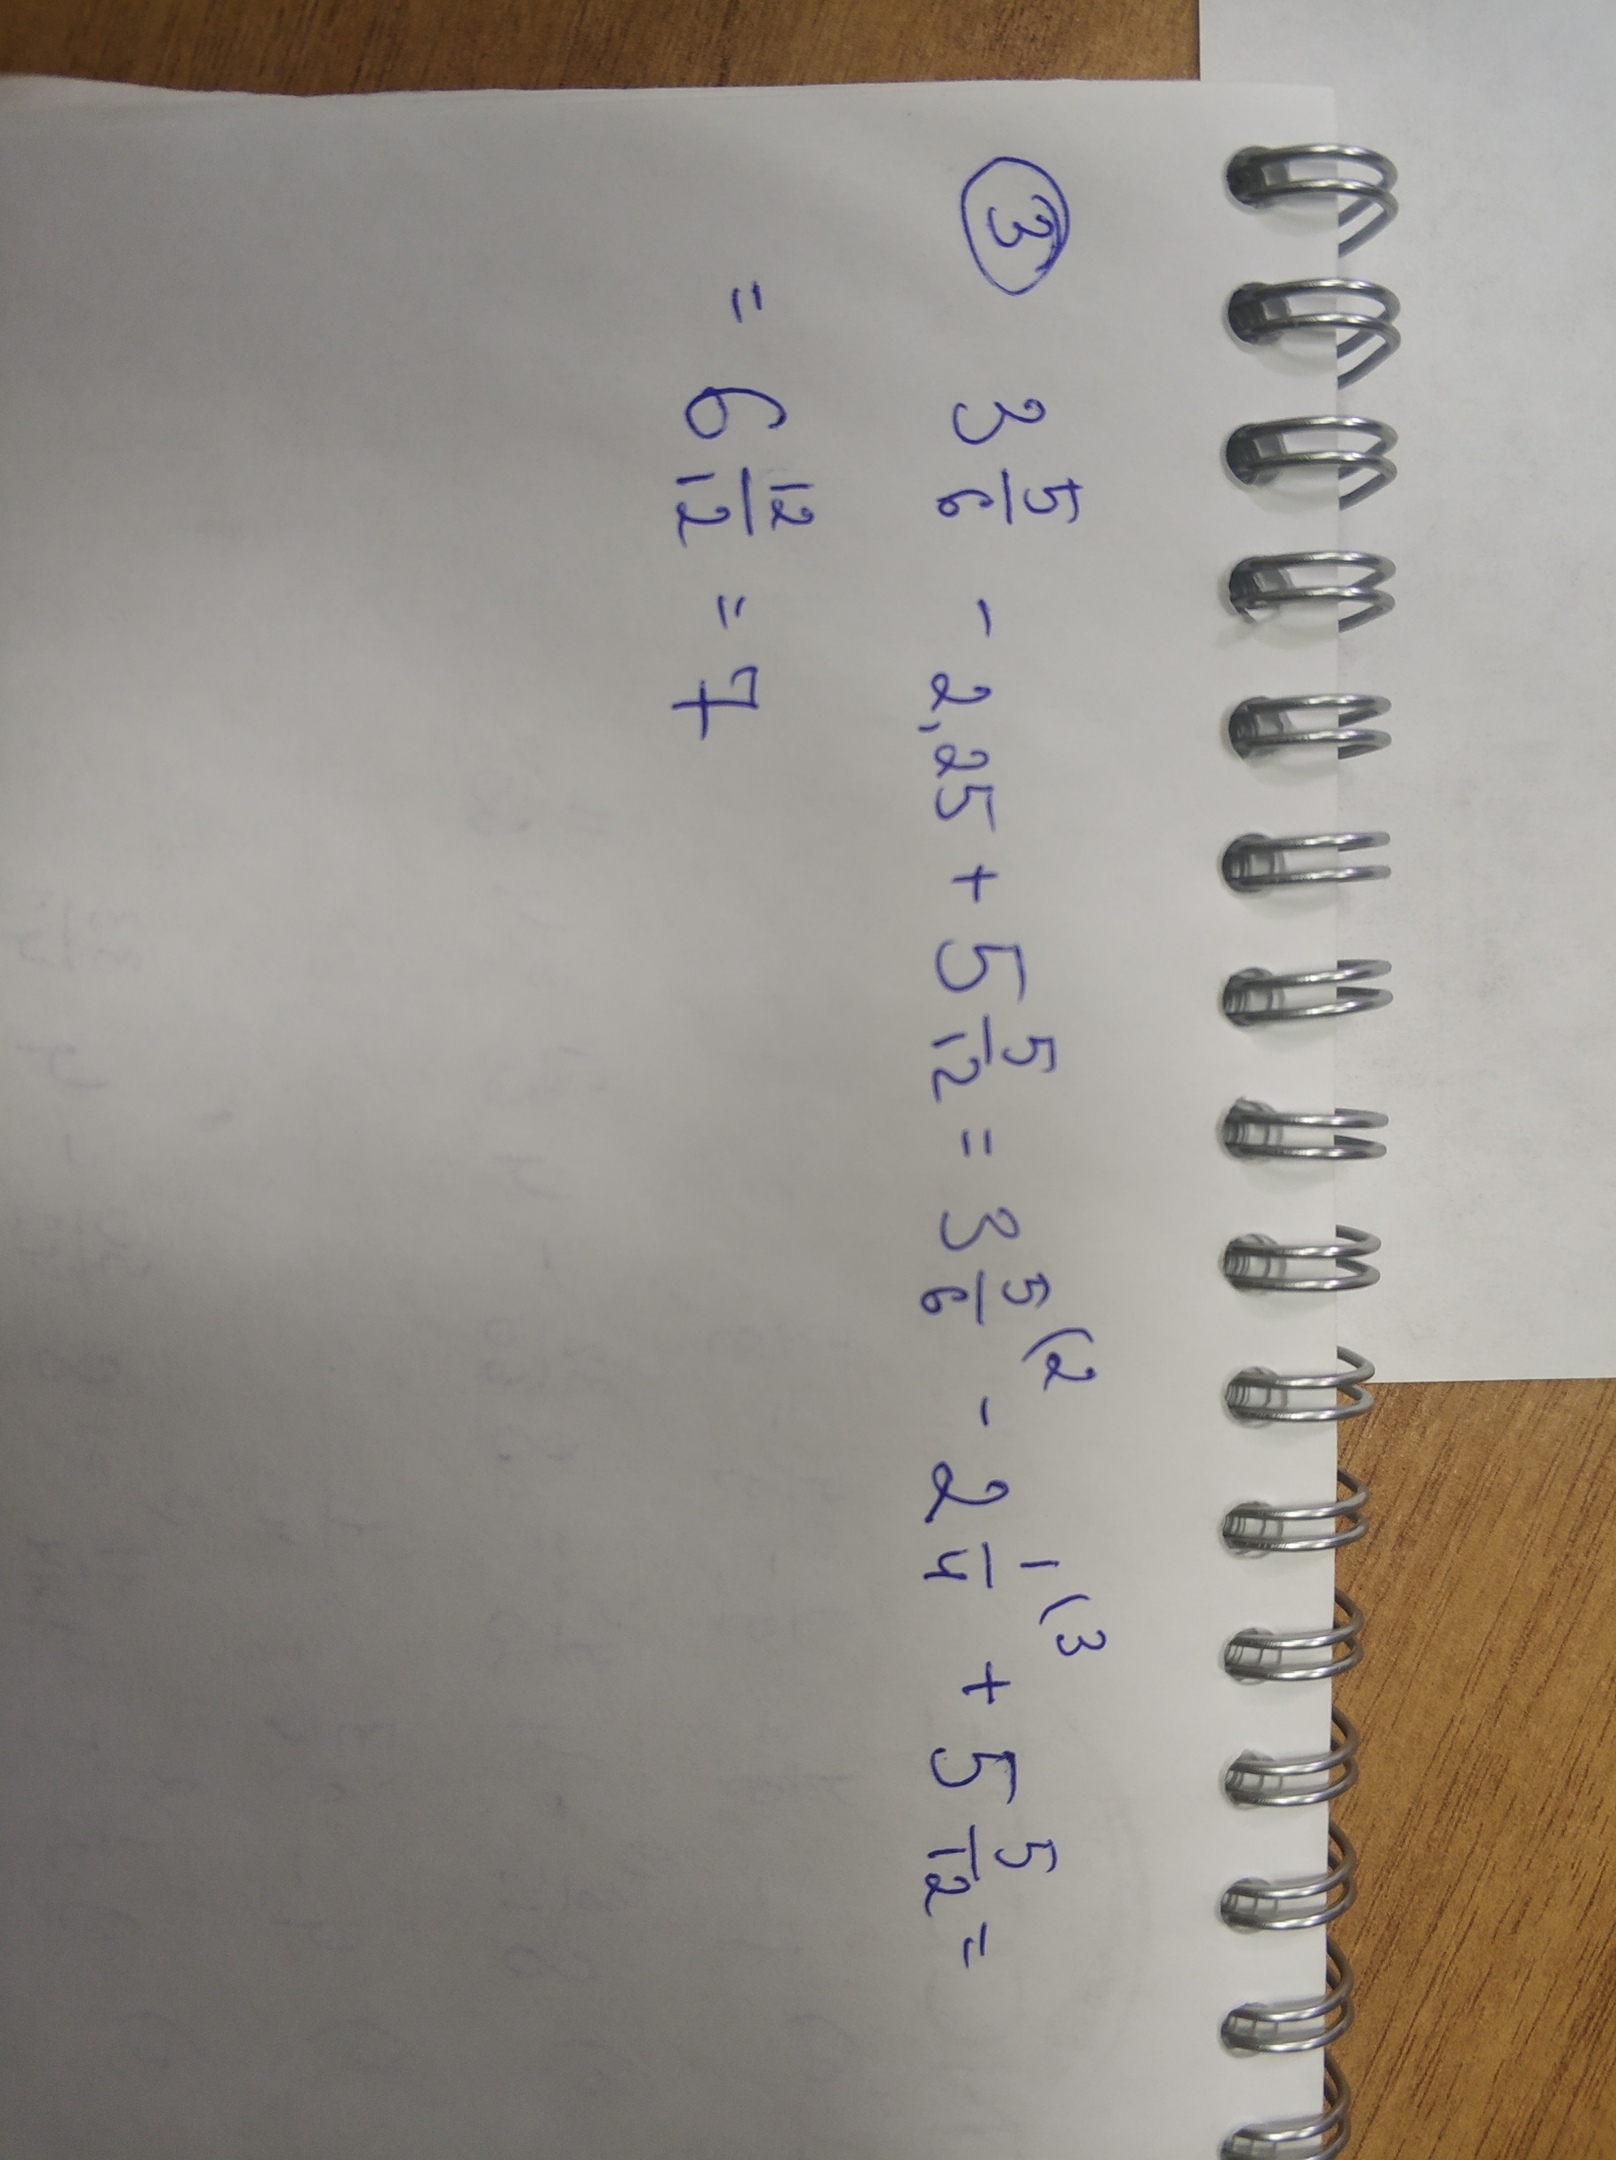 ③ 3 5/6 - 2,25 + 5 5/12 = 3 5/6 (2 - 2 1/4 (3 + 5 5/12 =
= 6 12/12 = 7